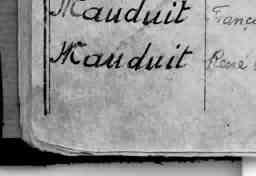 Mauduit Franç
Mauduit René